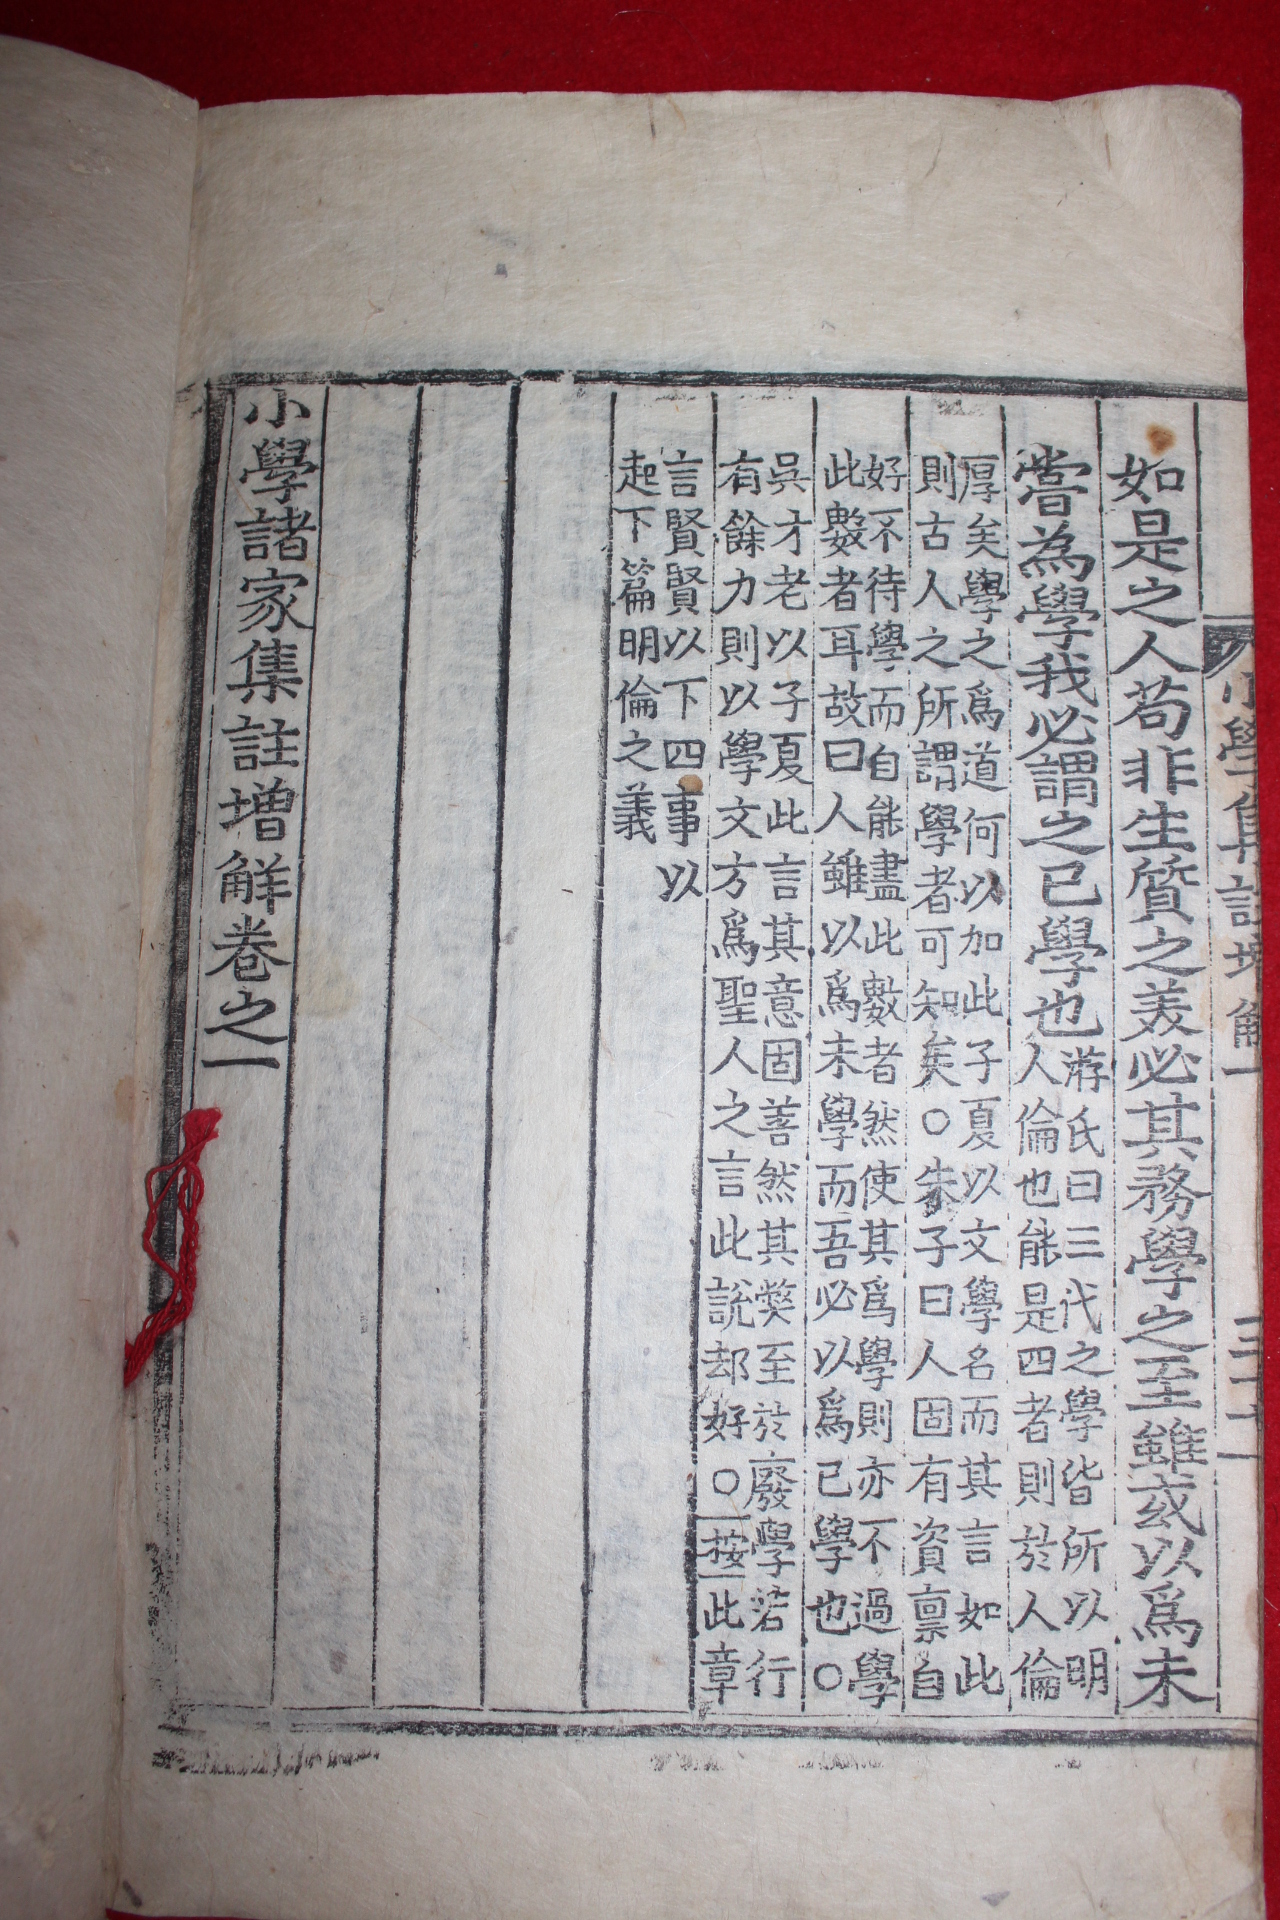 小學集註增解一
如是之人苟非生質之美必其務學之至雖或以爲未
嘗為學我必謂之已學也
游氏曰三代之學皆所以明
人倫也能是四者則於人倫
厚矣學之爲道何以加此子夏以文學名而其言如此
則古人之所謂學者可知矣○朱子曰人固有資禀自
好不待學而自能盡此數者然使其爲學則亦不過學
此數者耳故曰人雖以爲未學而吾必以爲已學也○
吳才老以子夏此言其意固善然其弊至於廢學若行
有餘力則以學文方爲聖人之言此說却好○按此章
言賢賢以下四事以
起下篇明倫之義
小學諸家集註增解卷之一